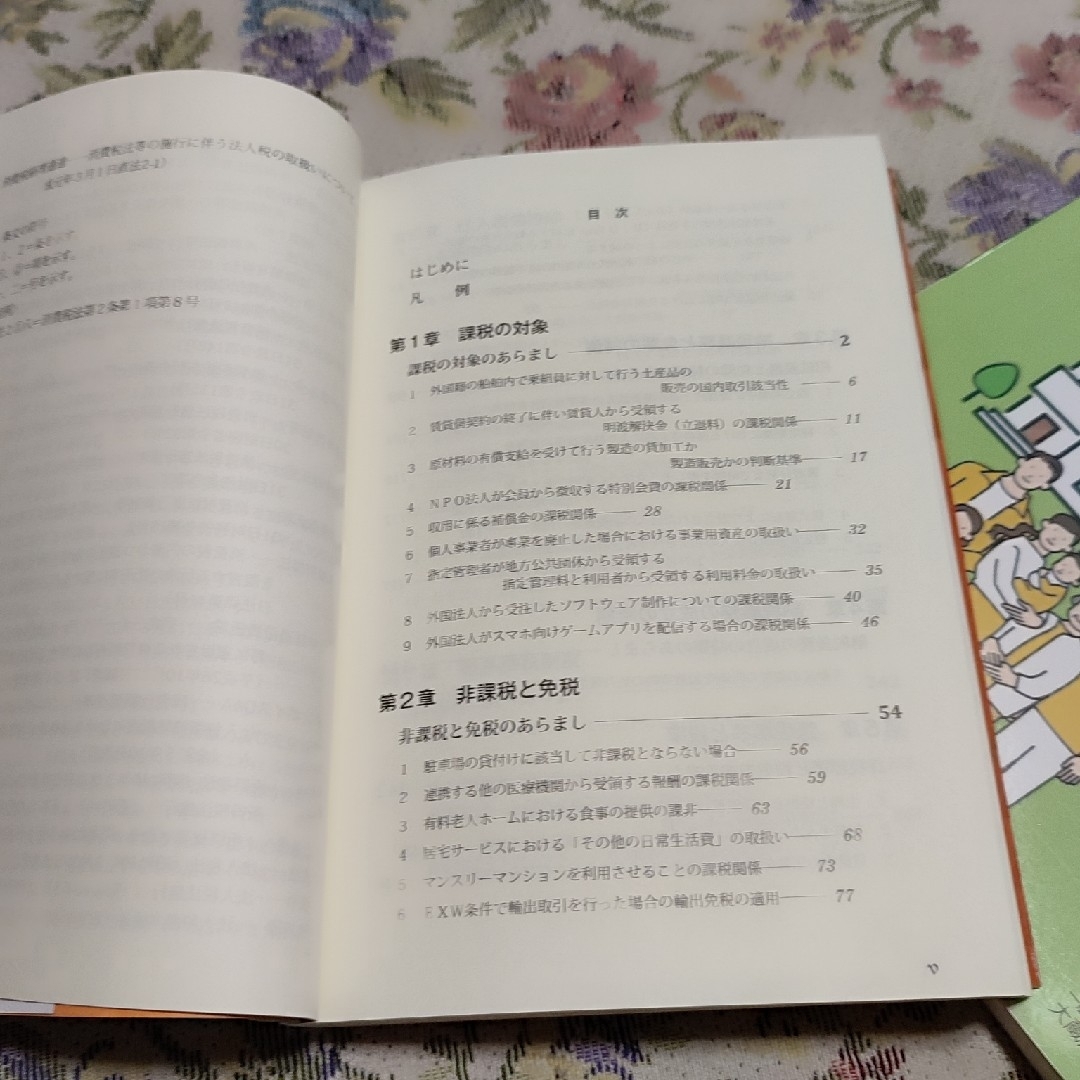 消費税法等の施行に伴う法人税の取扱いについ
成元年3月1日直法2-1)
消費税法第2条第1項第8号
目 次
はじめに
凡 例
第1章 課税の対象
課税の対象のあらまし 2
1 外国籍の船舶内で乗組員に対して行う土産品の
販売の国内取引該当性 6
2 賃貸借契約の終了に伴い賃貸人から受領する
明渡解決金(立退料)の課税関係 11
3 原材料の有償支給を受けて行う製造の賃加工か
製造販売かの判断基準 17
4 NPO法人が会員から徴収する特別会費の課税関係 21
5 収用に係る補償金の課税関係 28
6 個人事業者が事業を廃止した場合における事業用資産の取扱い 32
7 指定管理者が地方公共団体から受領する
指定管理料と利用者から受領する利用料金の取扱い 35
8 外国法人から受注したソフトウェア制作についての課税関係 40
9 外国法人がスマホ向けゲームアプリを配信する場合の課税関係 46
第2章 非課税と免税
非課税と免税のあらまし 54
1 駐車場の貸付けに該当して非課税とならない場合 56
2 連携する他の医療機関から受領する報酬の課税関係 59
3 有料老人ホームにおける食事の提供の課非 63
4 居宅サービスにおける「その他の日常生活費」の取扱い 68
5 マンスリーマンションを利用させることの課税関係 73
6 EXW条件で輸出取引を行った場合の輸出免税の適用 77
v